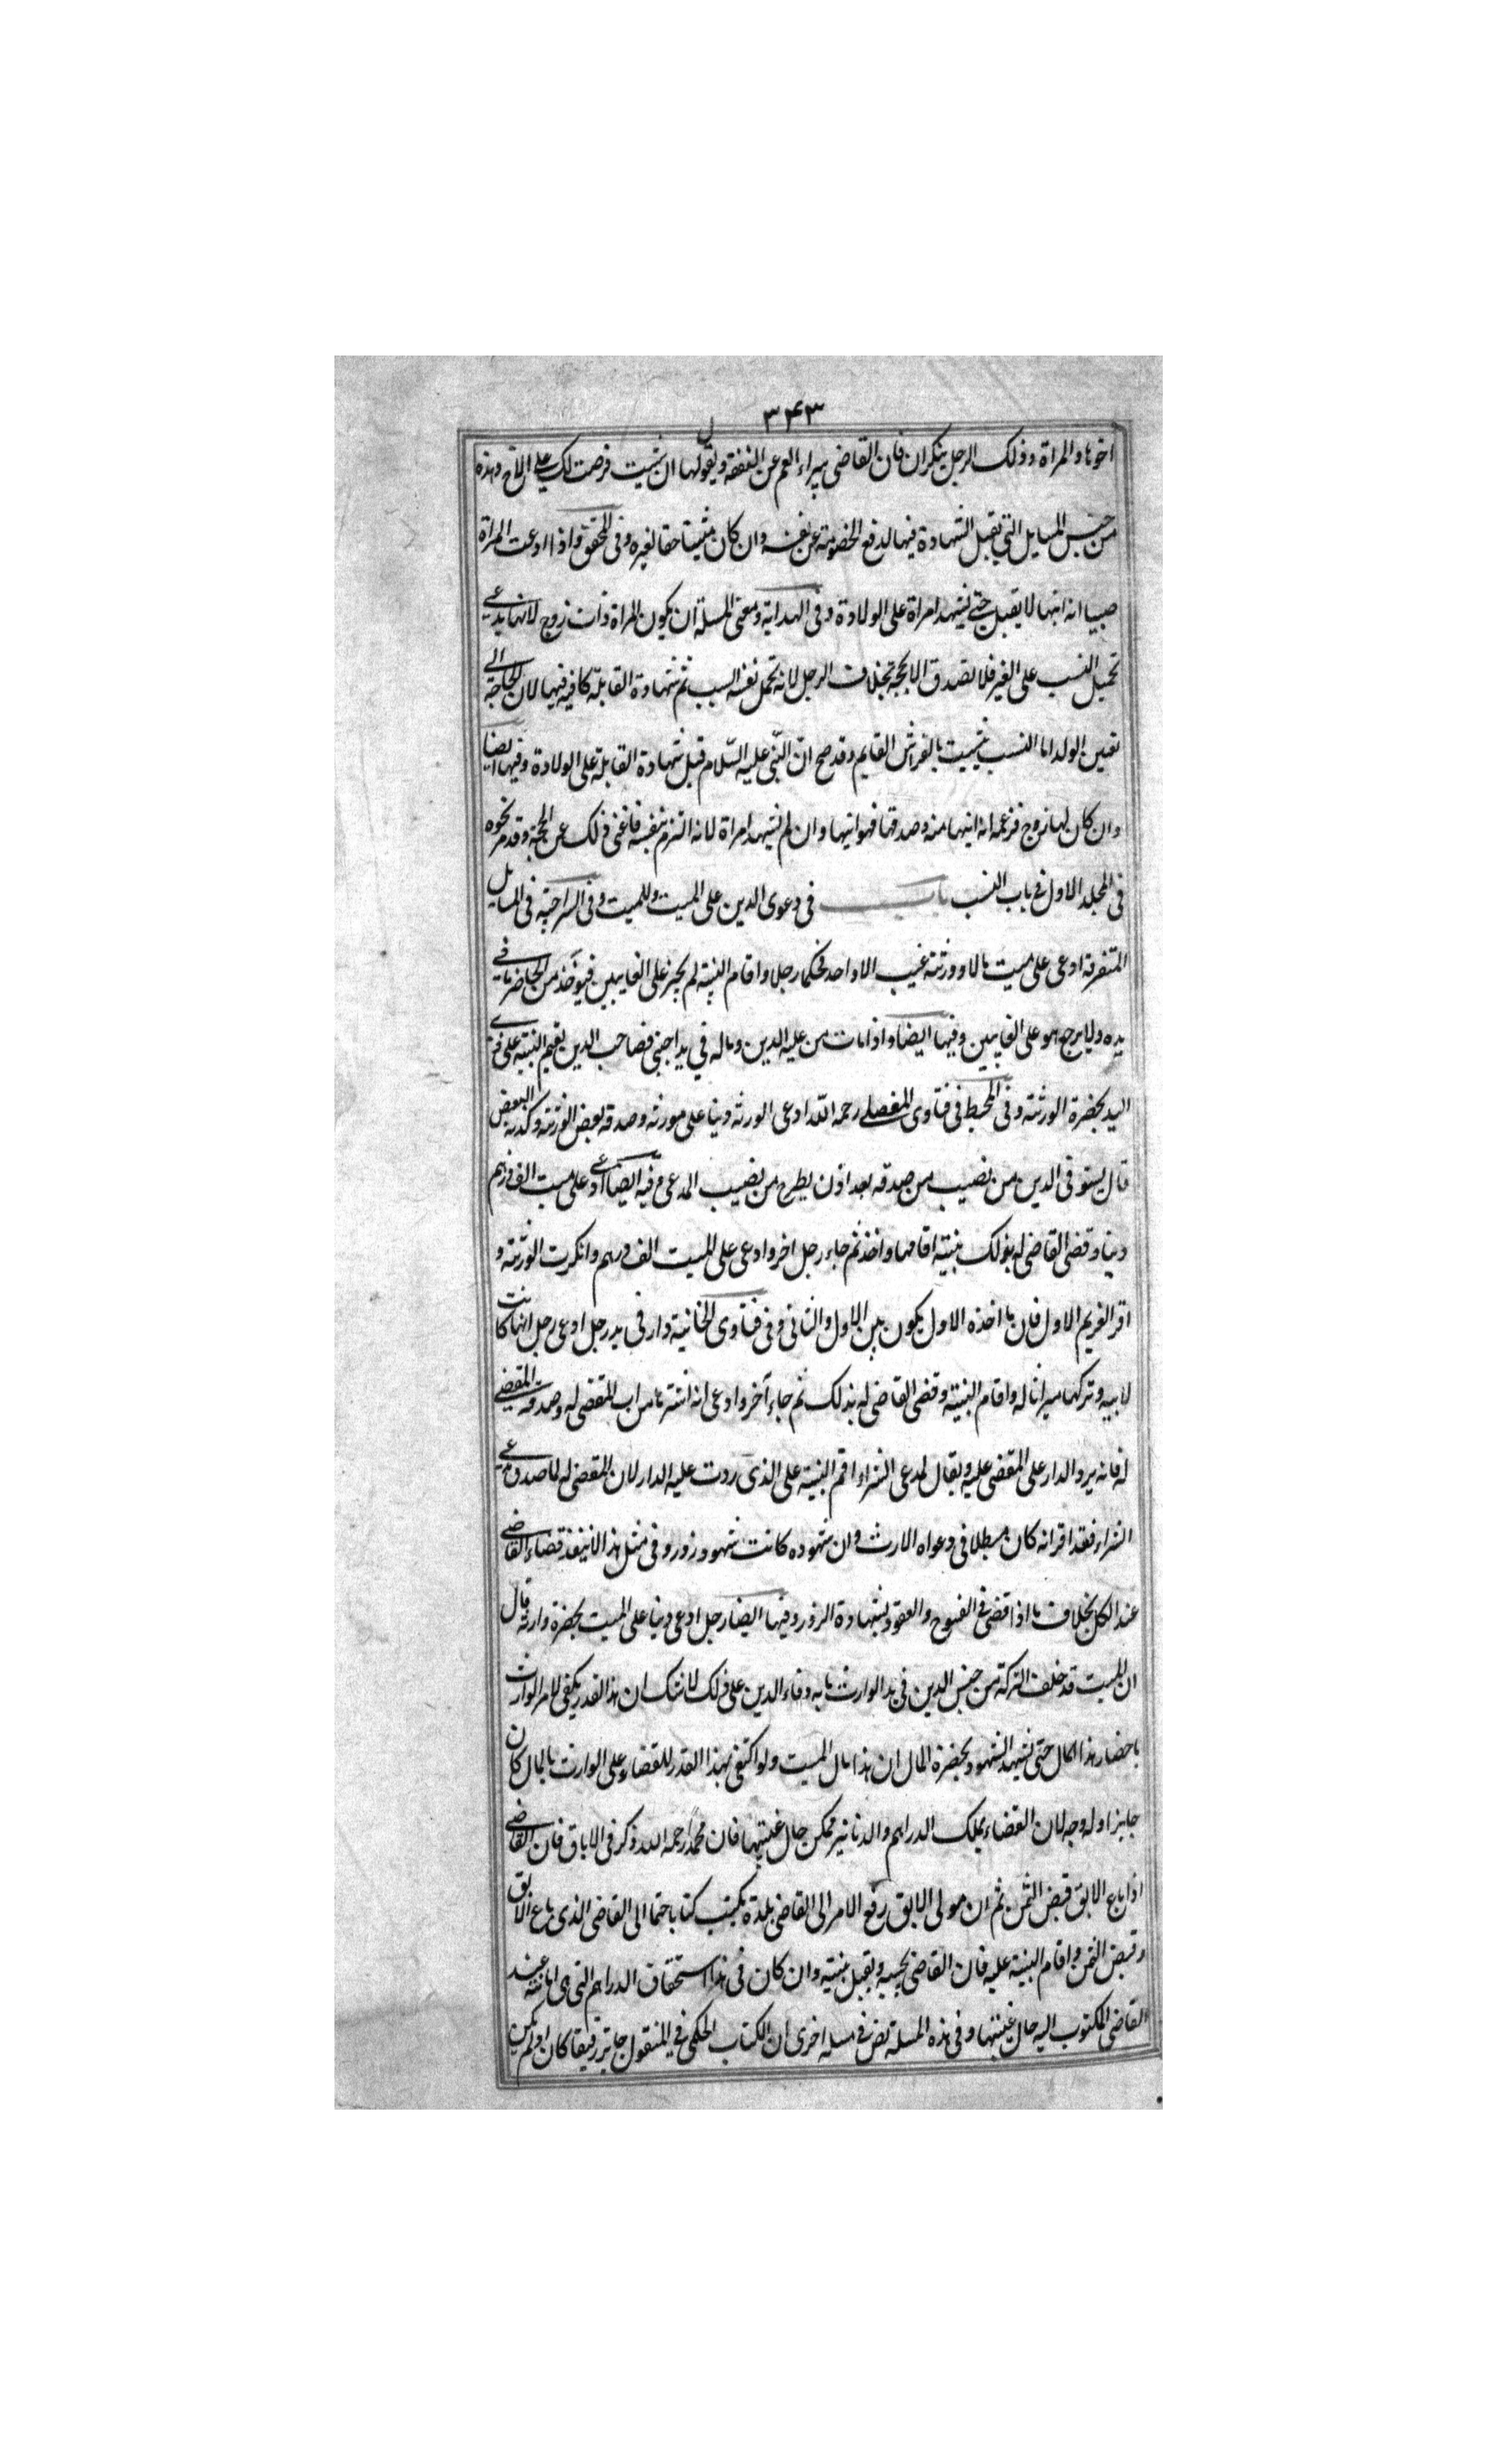 ۳۴۳
اخوها والمراة وذلك الرجل ينكران فان القاضي يبراء العم عن النفقة ويقول لها ان شيت فرضت لك على الاخ وهذه
من جنس المسايل التي يقبل الشهادة فيها لدفع الخصومة عن نفسه وان كان مثبتا حقا لغيره وفي المحقق واذا ادعت المراة
صبيا انه ابنها لا يقبل حتى يشهد امراة على الولادة وفي الهداية ومعنى المسلة ان يكون المراة ذات زوج لانها يدعي
تحميل النسب على الغير فلا تصدق الا بحجة بخلاف الرجل لانه تحمل نفسه النسب ثم شهادة القابلة كافية فيها لان الحاجة الى
تعين الولد اما النسب يثبت بالفراش القايم وقد صح ان النبي عليه السلام قبل شهادة القابلة على الولادة وفيها ايضا
وان كان لها زوج فزعمه انه ابنها منه وصدقها فهو ابنها وان لم تشهد امراة لانه التزم بنفسه فاغنى ذلك عن الحجة وقد مر نحوه
في المجلد الاول في باب النسب باب في دعوى الدين على الميت وللميت وفي السراجية في المسايل
المتفرقة ادعى على ميت مالا وورثته غيب الا واحد فحكما رجل واقام البينة لم يجز على الغايبين فيوخذ من الحاضر ما في
يده ولا يرجع هو على الغايبين وفيها ايضا واذا مات من عليه الدين وماله في يد اجنبي فصاحب الدين يقيم البينة على ذي
اليد بحضرة الورثة وفي المحيط في فتاوى الفضلي رحمه الله ادعى الورثه دينا على مورثه وصدقه بعض الورثة وكذبه البعض
قال يستوفى الدين من نصيب من صدقه بعد اذن يطرح من نصيب المدعي وفيه ايضا ادعى على ميت الف درهم
دينا وقضى القاضي له بذلك ببينة اقامها واخذ ثم جاء رجل اخر وادعى على الميت الف درهم وانكرت الورثة و
اقر الغريم الاول فان ما اخذه الاول يكون بين الاول والثاني وفي فتاوى الخانية دار في يد رجل ادعى رجل انها كانت
لابيه وتركها ميراثا له واقام البينة وقضى القاضي له بذلك ثم جاء آخر وادعى انه اشتراها من اب المقضي له وصدقه المقضي
له فانه يرد الدار على المقضي عليه ويقال لمدعي الشراء اقم البينة على الذي ردت عليه الدار لان المقضي له لما صدق مدعي
الشراء فقد اقر انه كان مبطلا في دعواه الارث وان شهوده كانت شهود زور وفي مثل هذا لا ينفذ قضاء القاضي
عند الكل بخلاف ما اذا قضى في الفسوخ والعقود بشهادة الزور وفيها ايضا رجل ادعى دينا على الميت بحضرة وارثه قال
ان الميت قد خلف التركة من جنس الدين في يد الوارث ما به وفاء الدين على ذلك لا شك ان هذا القدر يكفي لامر الوارث
باحضار هذا المال حتى تشهد الشهود بحضرة المال ان هذا مال الميت ولو اكتفى بهذا القدر للقضاء على الوارث بالمال كان
جايزا وله وجه لان القضاء بملك الدراهم والدنانير ممكن حال غيبتها فان محمدا رحمه الله ذكر في الاباق فان القاضي
اذا باع الابق قبض الثمن ثم ان مولى الابق رفع الامر الى القاضي بلدة يكتب كتابا حتما الى القاضي الذي باع الابق
وقبض الثمن واقام البينة عليه فان القاضي يجيبه ويقبل بينته وان كان في هذا استحقاق الدراهم التي هي امانة عند
القاضي المكتوب اليه حال غيبتها وفي هذه المسلة نص في مسلة اخرى ان الكتاب الحكمي في المنقول جايز رقيقا كان او لم يكن